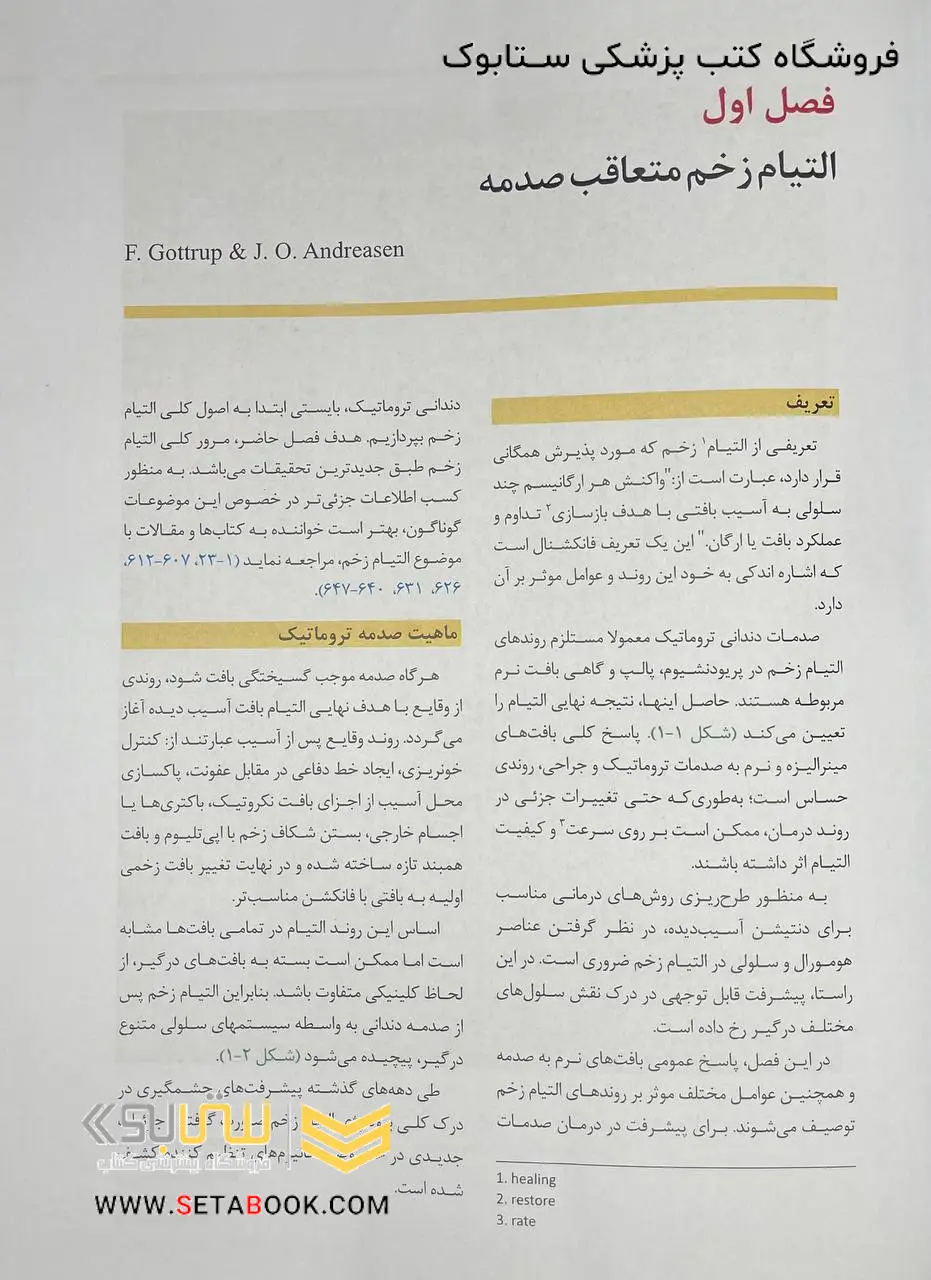 فروشگاه کتب پزشکی ستابوک
فصل اول
التیام زخم متعاقب صدمه
F. Gottrup & J. O. Andreasen
تعریف
تعریفی از التیام¹ زخم که مورد پذیرش همگانی
قرار دارد، عبارت است از:"واکنش هر ارگانیسم چند
سلولی به آسیب بافتی با هدف بازسازی² تداوم و
عملکرد بافت یا ارگان." این یک تعریف فانکشنال است
که اشاره اندکی به خود این روند و عوامل موثر بر آن
دارد.
صدمات دندانی تروماتیک معمولا مستلزم روندهای
التیام زخم در پریودنشیوم، پالپ و گاهی بافت نرم
مربوطه هستند. حاصل اینها، نتیجه نهایی التیام را
تعیین می‌کند (شکل ۱-۱). پاسخ کلی بافت‌های
مینرالیزه و نرم به صدمات تروماتیک و جراحی، روندی
حساس است؛ به‌طوری‌که حتی تغییرات جزئی در
روند درمان، ممکن است بر روی سرعت³ و کیفیت
التیام اثر داشته باشند.
به منظور طرح‌ریزی روش‌های درمانی مناسب
برای دنتیشن آسیب‌دیده، در نظر گرفتن عناصر
هومورال و سلولی در التیام زخم ضروری است. در این
راستا، پیشرفت قابل توجهی در درک نقش سلول‌های
مختلف درگیر رخ داده است.
در این فصل، پاسخ عمومی بافت‌های نرم به صدمه
و همچنین عوامل مختلف موثر بر روندهای التیام زخم
توصیف می‌شوند. برای پیشرفت در درمان صدمات
1. healing
2. restore
3. rate
دندانی تروماتیک، بایستی ابتدا به اصول کلی التیام
زخم بپردازیم. هدف فصل حاضر، مرور کلی التیام
زخم طبق جدیدترین تحقیقات می‌باشد. به منظور
کسب اطلاعات جزئی‌تر در خصوص این موضوعات
گوناگون، بهتر است خواننده به کتاب‌ها و مقالات با
موضوع التیام زخم، مراجعه نماید (۱-۲۳، ۶۰۷-۶۱۲،
۶۲۶، ۶۳۱، ۶۴۰-۶۴۷).
ماهیت صدمه تروماتیک
هرگاه صدمه موجب گسیختگی بافت شود، روندی
از وقایع با هدف نهایی التیام بافت آسیب دیده آغاز
می‌گردد. روند وقایع پس از آسیب عبارتند از: کنترل
خونریزی، ایجاد خط دفاعی در مقابل عفونت، پاکسازی
محل آسیب از اجزای بافت نکروتیک، باکتری‌ها یا
اجسام خارجی، بستن شکاف زخم با اپی‌تلیوم و بافت
همبند تازه ساخته شده و در نهایت تغییر بافت زخمی
اولیه به بافتی با فانکشن مناسب‌تر.
اساس این روند التیام در تمامی بافت‌ها مشابه
است اما ممکن است بسته به بافت‌های درگیر، از
لحاظ کلینیکی متفاوت باشد. بنابراین التیام زخم پس
از صدمه دندانی به واسطه سیستمهای سلولی متنوع
درگیر، پیچیده می‌شود (شکل ۲-۱).
طی دهه‌های گذشته پیشرفت‌های چشمگیری در
درک کلی زخم صورت
جدیدی در کشف
شده است.
ستابوک
فروشگاه اینترنتی کتاب
WWW.SETABOOK.COM